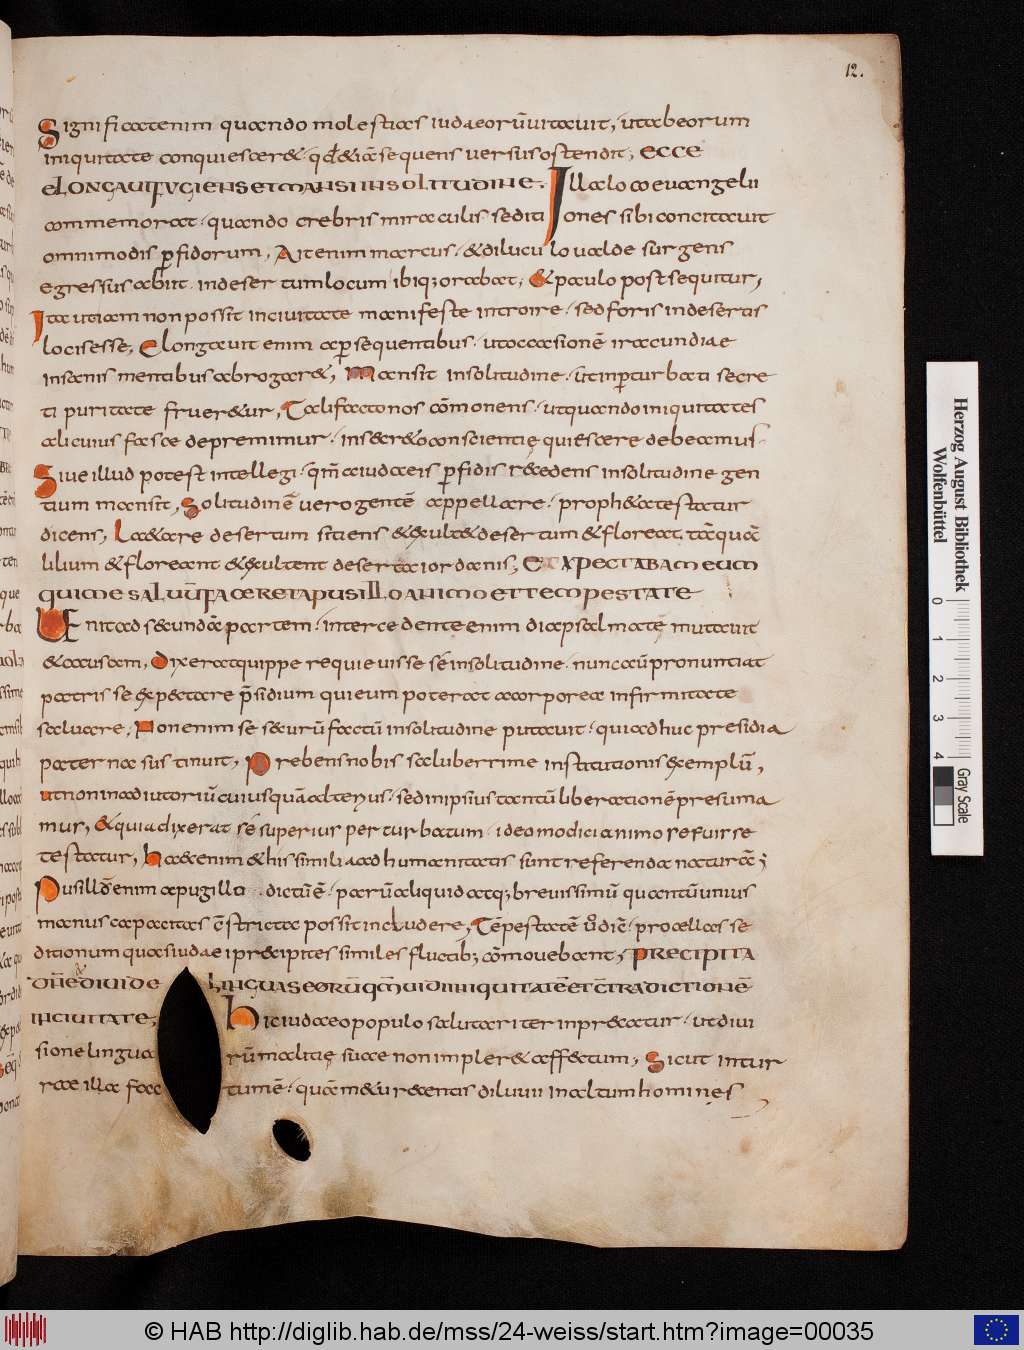 12.
Significat enim quando molestias iudaeorū uitauit, ut ab eorum
iniquitate conquiesceret. qđ & iā sequens uersus ostendit, ECCE
ELONGAUI FUGIENS ET MANSI IN SOLITUDINE. Illa loca euangelii
commemorat. quando crebris miraculis seditiones sibi concitauit
omnimodis pfidorum, Ait enim marcus. & diluculo ualde surgens
egressus abiit. in desertum locum ibiq; orabat, & paulo post sequitur,
Ita ut iam non possit in ciuitate manifeste introire. sed foris in desertis
locis esse, Elongauit enim a psequentibus. ut occasionē iracundiae
insanis mentibus abrogaret, Mansit in solitudine. ut inpturbati secre
ti puritate frueretur, Tali facto nos cōmonens. ut quando iniquitates
alicuius fasce depremimur. in secreto conscientię quiescere debeamus.
Siue illud potest intellegi. qm̄ a iudaeis pfidis recedens in solitudine gen
tium mansit, Solitudinē uero gentē appellare. propheta testatur
dicens, Laetare desertum sitiens & exultet desertum & floreat tāquā
lilium & floreant & exultent deserta iordanis, EXPECTABAM EUM
QUI ME SALUŪ FACERET A PUSILLO ANIMO ET TEMPESTATE
Uenit ad secundā partem. intercedente enim diapsalmate mutauit
& accusam, Dixerat quippe requieuisse sé in solitudine. nunc aū pronuntiat
patris se expectare p̄sidium qui eum poterat a corporea infirmitate
saluare, Non enim se securū factū in solitudine putauit. qui adhuc presidia
paterna sustinuit, Prebens nobis saluberrime institutionis exemplū,
ut non in adiutoriū cuiusquā alterius. sed in ipsius tantū liberationē presuma
mur, & quia dixerat sé superius perturbatum. ideo modici animo se fuisse
testatur, haec enim & his similia ad humanitatis sunt referenda naturā;
Pusillū enim a pugillo dictū ē. parū aliquid atq; breuissimū quantū unius
manus capacitas cstricta possit includere, Tēpestatē ū dič. procellas se
ditionum quas iudaei precipites similes fluctib; cōmouebant, PRECIPITA
DN̄E DIUIDE LINGUAS EORŪ QM̄ UIDI INIQUITATĒ ET C̄TRADICTIONĒ
IN CIUITATE, hic iudaeo populo salutariter inprecatur. ut diui
sione linguarū malitię suae non impleret affectum, Sicut in tur
rae illa factum ē. quam & urecentis diluuii in altum homines
Herzog August Bibliothek
Wolfenbüttel
0 1 2 3 4
Gray Scale
© HAB http://diglib.hab.de/mss/24-weiss/start.htm?image=00035